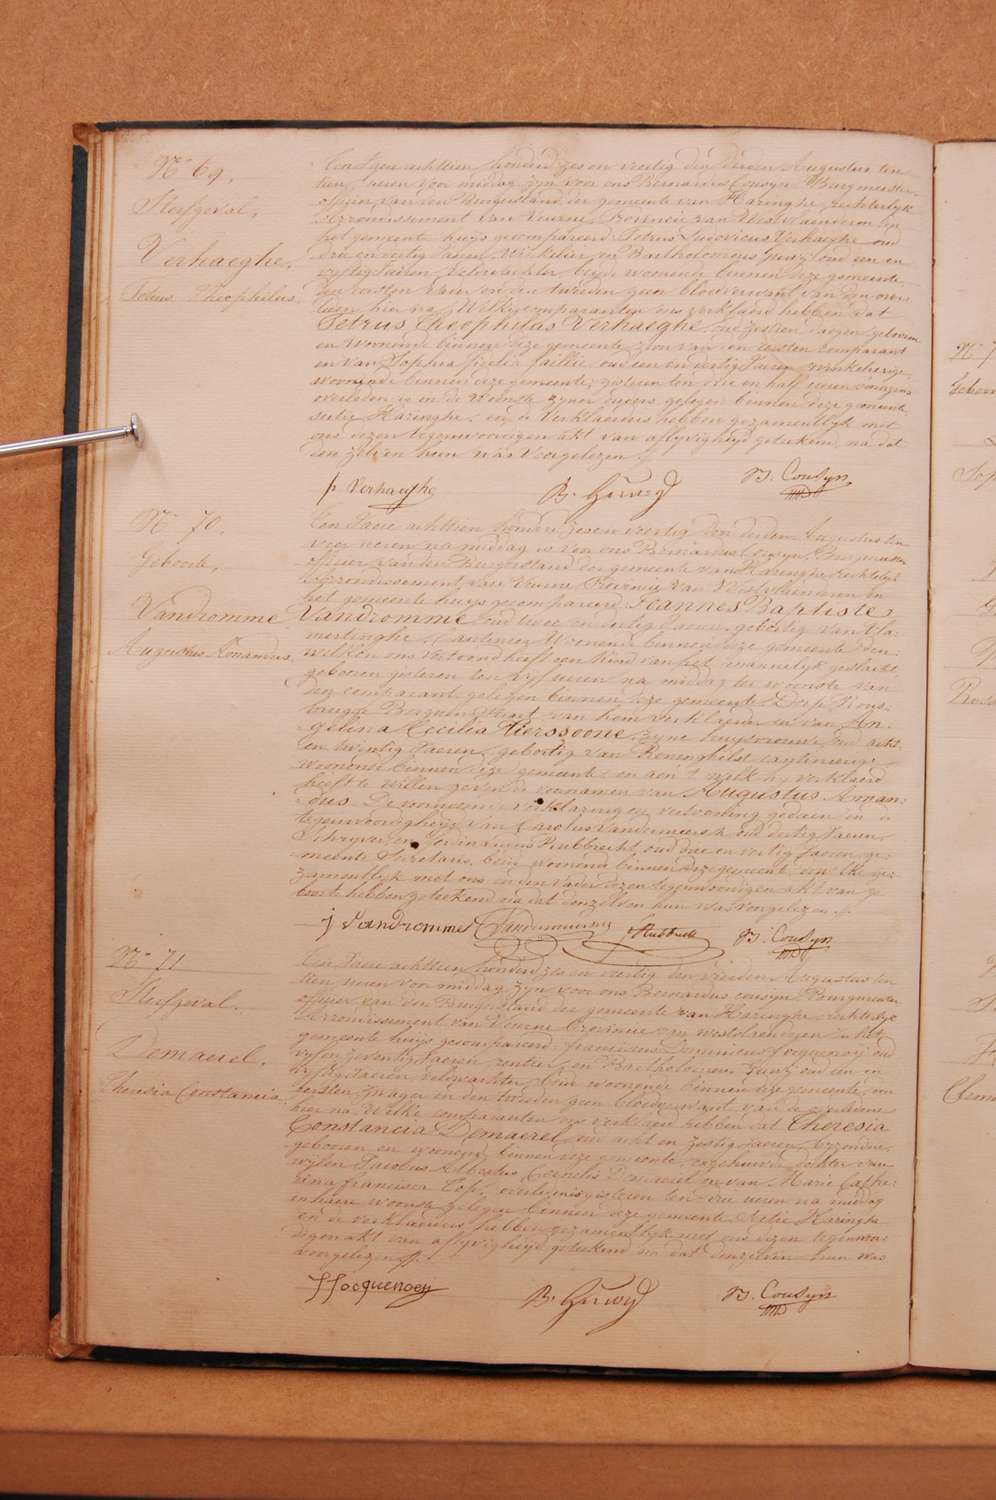 N° 69.
Sterfgeval.
Verhaeghe.
Petrus Theophilus.
Een Jaer achttien honderd zes en veertig den derden Augustus ten
tien ueren voor middag zyn voor ons Bernardus Cousyn Burgmeester
officier van den Burgerstand der gemeente van Haringhe, rechterlyk
arrondissement van Veurne, Provincie van Westvlaenderen in
het gemeente huys gecompareerd Petrus Ludovicus Verhaeghe oud
drie en veertig Jaeren, winkelier en Bartholomeus oud een en
vyftig Jaeren, veldwachter beyde woonende binnen deze gemeente,
den eersten vader en den tweeden geen bloedverwant van den over-
ledenen hier na, Welke comparanten ons verklaerd hebben dat
Petrus Theophilus Verhaeghe, oud zestien dagen, geboren
en woonende binnen deze gemeente zoon van den eersten comparant
en van Sophia fidelia faillie, oud een en dertig Jaeren, winkelierige,
woonende binnen deze gemeente, gisteren ten drie en half ueren
overleden is in de Woonste zyner ouders, gelegen binnen deze gemeente,
sectie Haringhe. en de Verklaerders hebben gezamentlyk met
ons dezen tegenwoordigen akt van aflyvigheyd geteekend, na dat
den zelven hun was Voorgelezen.
p Verhaeghe B. B. Cousyn
N° 70.
Geboorte.
Vandromme
Augustus Amandus.
Een Jaer achttien honderd zes en veertig den derden Augustus ten
vier ueren na middag is voor ons Bernardus Cousyn, Burgmeester
officier van den Burgerstand der gemeente van Haringhe, rechterlyk
arrondissement van Veurne, Provincie van Westvlaenderen in
het gemeente huys gecompareerd Joannes Baptiste
Vandromme oud twee en dertig Jaeren, geboortig van Vla-
mertinghe, woonende binnen deze gemeente, den
welken ons vertoond heeft een kind van het mannelyk geslacht
geboren gisteren ten vyf ueren na middag ter woonste van
den comparant gelegen binnen deze gemeente Dorp Rous-
brugge straet, van hem verklaerer en van An-
gelina Cecilia Tierssoone, zyne huysvrouwe, oud acht
en twintig Jaeren, geboortig van Reninghelst
woonende binnen deze gemeente en aen 't welk hy verklaerd
heeft te willen geven de voornamen van Augustus Aman-
dus. De voornoemde verklaring en vertooning gedaen in de
tegenwoordigheyd van Carolus Vandermeersch, oud dertig Jaeren,
Schryver, en Rubbrecht, oud drie en veertig Jaeren, ge-
meente Secretaris, beyde woonende binnen deze gemeente, den welke ge-
zamentlyk met ons en den vader dezen tegenwoordigen akt van ge-
boorte hebben geteekend na dat denzelven hun was voorgelezen.
j Vandromme B. Cousyn
N° 71
Sterfgeval.
Demaerel.
Theresia Constancia
Een Jaer achttien honderd zes en veertig den vierden Augustus ten
tien ueren voor middag, zyn voor ons Bernardus Cousyn Burgmeester
officier van den Burgerstand der gemeente van Haringhe, rechterlyk
arrondissement van Veurne Provincie van Westvlaenderen in het
gemeente huys gecompareerd, franciscus Dominicus Jocquenoy oud
vyf en zeventig Jaeren, rentier, en Bartholomeus oud een en
vyftig Jaeren, veldwachter, beyde woonende binnen deze gemeente, den
eersten zwager en den tweeden geen bloedverwant van de overledene
hier na, Welke comparanten ons verklaerd hebben dat Theresia
Constancia Demaerel, oud acht en zestig Jaeren, byzondere,
geboren en woonende binnen deze gemeente, ongehuwde dochter van
wylen Jacobus Albertus Cornelis Demaerel en van Marie Cathe-
rina francisca Top, overleden is gisteren ten drie ueren na middag
in haere woonste gelegen binnen deze gemeente, Sectie Haringhe
en de verklaerders hebben gezamentlyk met ons dezen tegenwoor-
digen akt van aflyvigheyd geteekend na dat denzelven hun was
voorgelezen.
Jocquenoey B. B. Cousyn